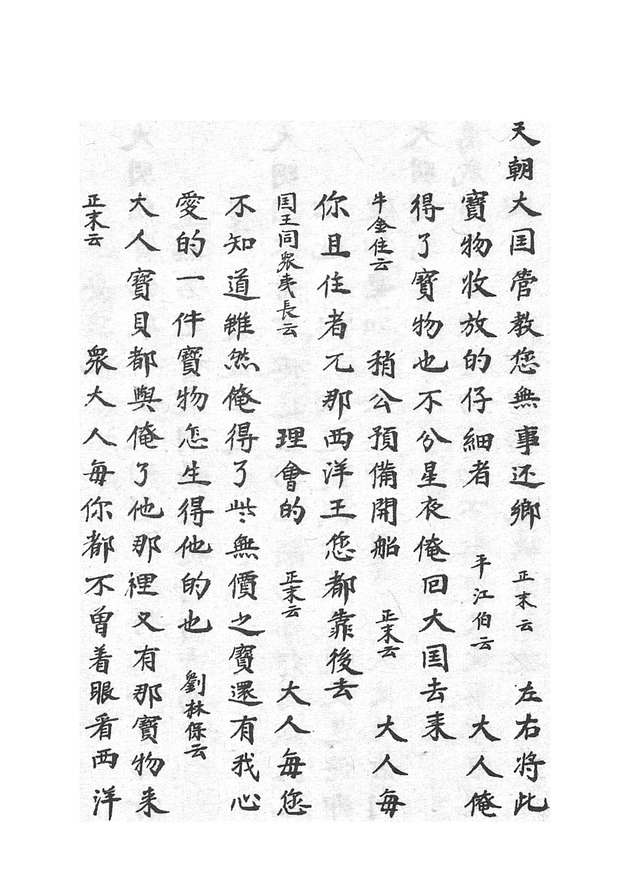 天朝大国管教您無事还鄉 正末云 左右将此
寶物收放的仔細者 平江伯云 大人俺
得了寶物也不分星夜俺囘大国去来
牛金住云 稍公預備開船 正末云 大人每
你且住者兀那西洋王您都靠後去
国王同衆夷長云 理會的 正末云 大人每您
不知道雖然俺得了些無價之寶還有我心
愛的一件寶物怎生得他的也 劉林保云
大人寶貝都與俺了他那裡又有那寶物来
正末云 衆大人每你都不曾着眼看西洋